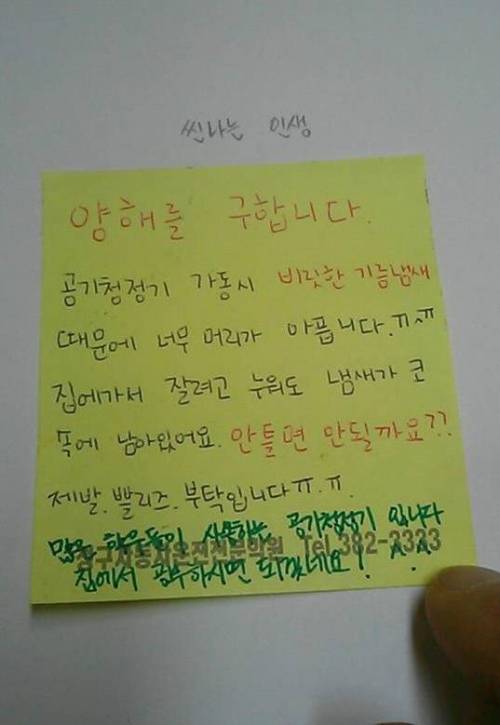 씬나는 인생
양해를 구합니다.
공기청정기 가동시 비릿한 기름냄새
때문에 너무 머리가 아픕니다.ㅠ.ㅠ
집에가서 잘려고 누워도 냄새가 코
속에 남아있어요. 안틀면 안될까요??
제발.쁠리즈.부탁입니다ㅠ.ㅠ.
많은 학우들이 사용하는 공기청정기 입니다
자동차운전전문학원 Tel 382-3333
집에서 공부하시면 되겠네요! ^.^